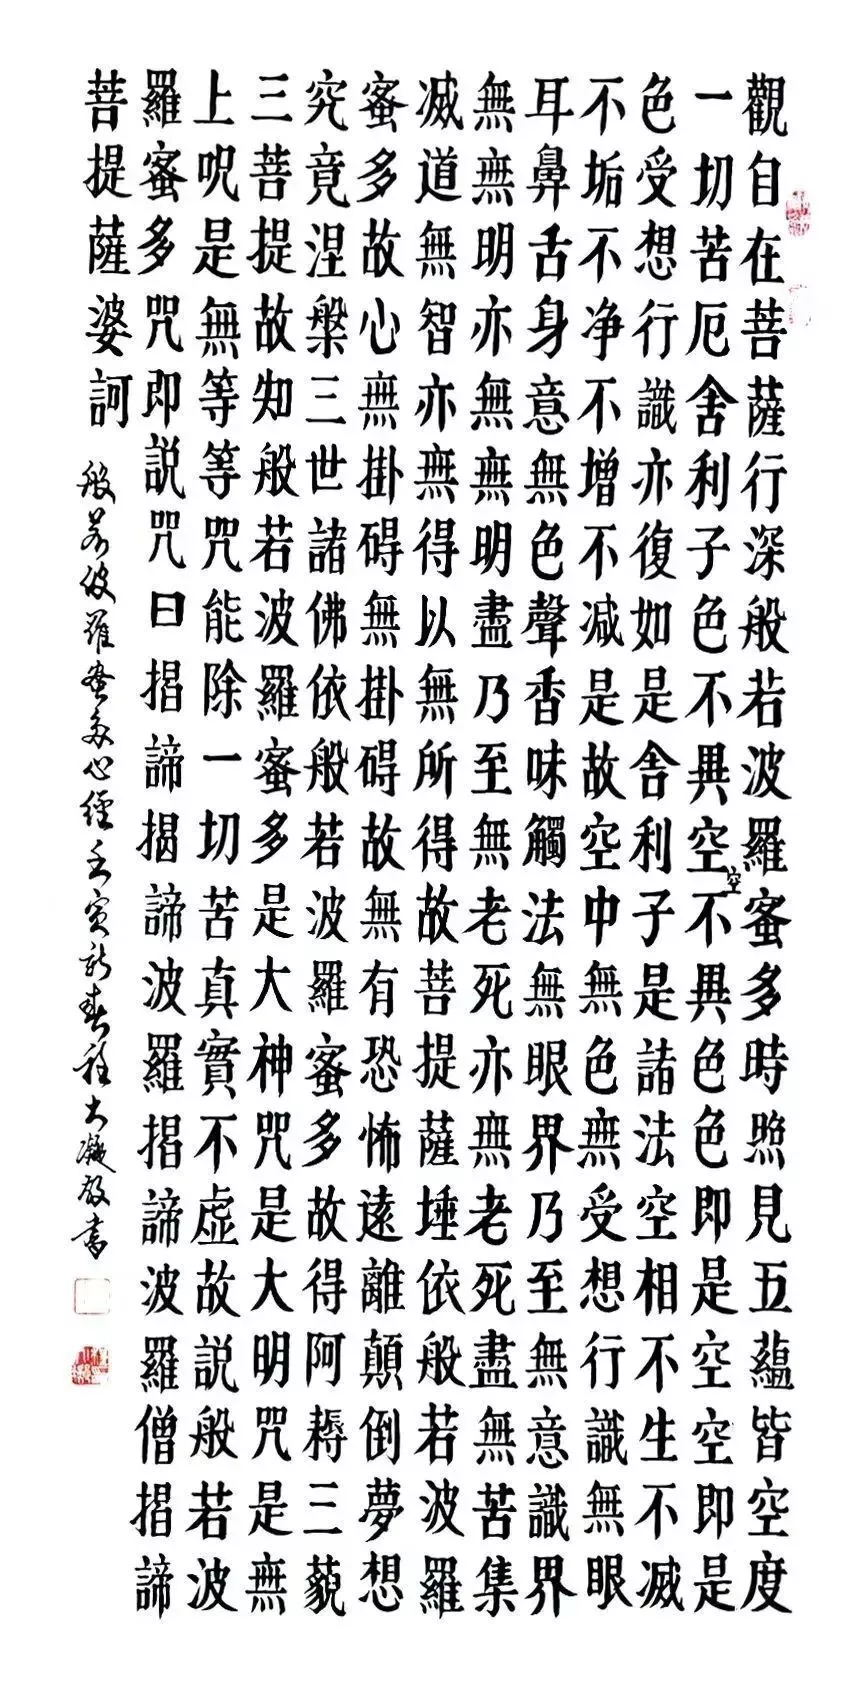 觀自在菩薩行深般若波羅蜜多時照見五蘊皆空度
一切苦厄舍利子色不異空空不異色色即是空空即是
色受想行識亦復如是舍利子是諸法空相不生不滅
不垢不净不增不减是故空中無色無受想行識無眼
耳鼻舌身意無色聲香味觸法無眼界乃至無意識界
無無明亦無無明盡乃至無老死亦無老死盡無苦集
滅道無智亦無得以無所得故菩提薩埵依般若波羅
蜜多故心無掛碍無掛碍故無有恐怖遠離顛倒夢想
究竟涅槃三世諸佛依般若波羅蜜多故得阿耨三藐
三菩提故知般若波羅蜜多是大神咒是大明咒是無
上呪是無等等咒能除一切苦真實不虛故説般若波
羅蜜多咒即説咒曰揭諦揭諦波羅揭諦波羅僧揭諦
菩提薩婆訶
般若波羅蜜多心經壬寅新春程大凝敬書